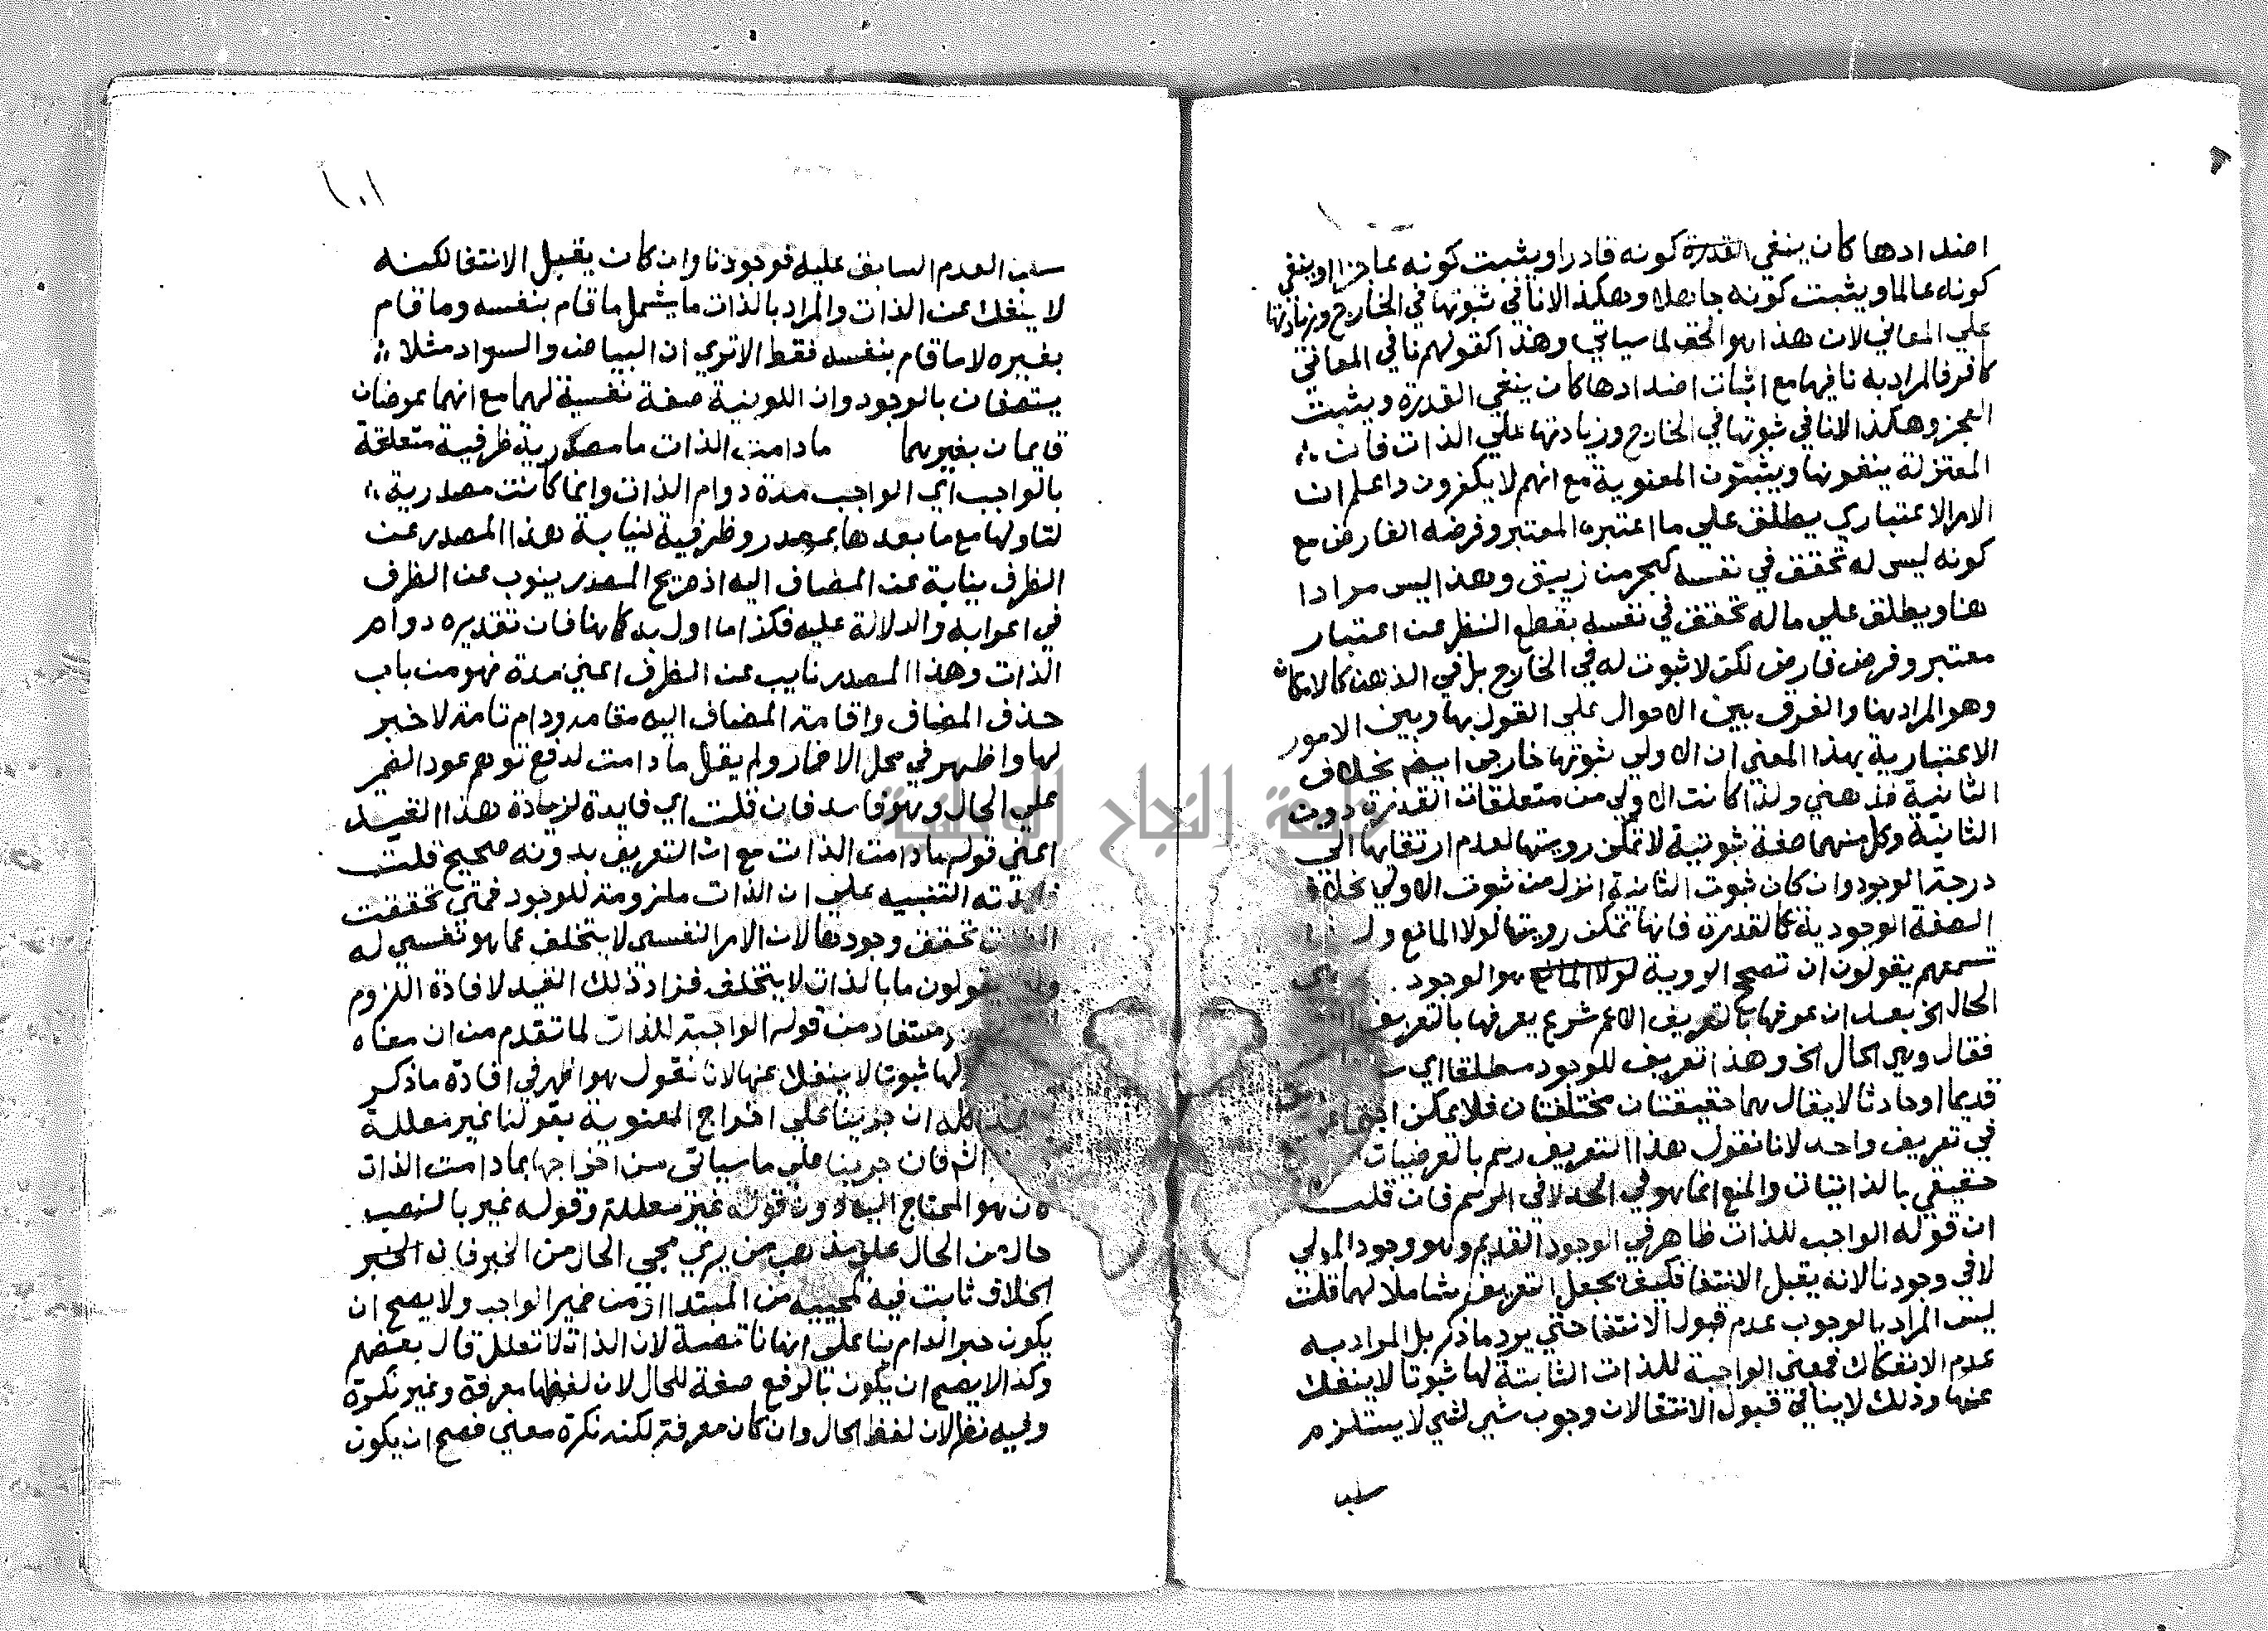 اضدادها كان ينفي القدرة كونه قادرا ويثبت كونه عاجزا او ينفي
كونه عالما ويثبت كونه جاهلا وهكذا لا نافي ثبوتها في الخارج وزيادتها
علي المعاني لان هذا هو الحق لما سياتي وهذا كقولهم نافي المعاني
كافر فالمراد به نافيها مع اثبات اضدادها كان ينفي القدرة ويثبت
العجز وهكذا لا نافي ثبوتها في الخارج وزيادتها علي الذات فان
المعتزلة ينفونها ويثبتون المعنوية مع انهم لا يكفرون واعلم ان
الامر الاعتباري يطلق علي ما اعتبره المعتبر وفرضه الفارض مع
كونه ليس له تحقق في نفسه كبحر من زيبق وهذا ليس مرادا
هنا ويطلق علي ما له تحقق في نفسه بقطع النظر عن اعتبار
معتبر وفرض فارض لكن لا ثبوت له في الخارج بل في الذهن كالامكان
وهو المراد هنا والفرق بين الاحوال علي القول بها وبين الامور
الاعتبارية بهذا المعني ان الاولي ثبوتها خارجي ايضم بخلاف
الثانية فذهني ولذا كانت الاولي من متعلقات القدرة دون
الثانية وكل منهما صفة ثبوتية لا تمكن رويتها لعدم ارتقايها الي
درجة الوجود وان كان ثبوت الثانية انزل من ثبوت الاولي بخلاف
الصفة الوجودية كالقدرة فانها تمكن رويتها لولا المانع و
تسمعهم يقولون ان تصح الروية لولا المانع هو الوجود
الحال الخ بعد ان عرفها بالتعريف الاعم شرع يعرفها بالتعريف
فقال وهي الحال الخ وهذا تعريف للوجود مطلقا اي
قديما او حادثا لا يقال هما حقيقتان مختلفتان فلا يمكن اجتماعهما
في تعريف واحد لانا نقول هذا التعريف رسم بالعرضيات
حقيقي بالذاتيات والمنع انما هو في الحد لا في الرسم فان قلت
ان قوله الواجب للذات ظاهر في الوجود القديم وهو وجود المولي
لا في وجودنا لانه يقبل الانتفا فكيف تجعل التعريف شاملا لهما قلت
ليس المراد بالوجوب عدم قبول الانتفا حتي يرد ما ذكر بل المراد به
عدم الانفكاك فمعني الواجبة للذات الثابتة لها ثبوتا لا ينفك
عنها وذلك لا ينافي قبول الانتفا لان وجوب شي لشي لا يستلزم
سلب
١٠١
سلب العدم السابق عليه فوجودنا وان كان يقبل الانتفا لكنه
لا ينفك عن الذات والمراد بالذات ما يشمل ما قام بنفسه وما قام
بغيره لا ما قام بنفسه فقط الا تري ان البياض والسواد مثلا
يتصفان بالوجود وان اللونية صفة نفسية لهما مع انهما عرضان
قايمان بغيرهما ما دامت الذات ما مصدرية ظرفية متعلقة
بالواجب اي الواجب مدة دوام الذات وانما كانت مصدرية
لتاولها مع ما بعدها بمصدر وظرفية لنيابة هذا المصدر عن
الظرف نيابة عن المضاف اليه اذ صريح المصدر ينوب عن الظرف
في اعرابه والدلالة عليه فكذا ما اول به كما هنا فان تقديره دوام
الذات وهذا المصدر نايب عن الظرف اعني مدة فهو من باب
حذف المضاف واقامة المضاف اليه مقامه ودام تامة لا خبر
لها واظهر في محل الاضمار ولم يقل ما دامت لدفع توهم عود الضمير
علي الحال وهو فاسد فان قلت اي فايدة لزيادة هذا القيد
اعني قوله ما دامت الذات مع ان التعريف بدونه صحيح قلت
فايدته التنبيه علي ان الذات ملزومة للوجود فمتي تحققت
الذات تحقق وجودها لان الامر النفسي لا يتخلف عما هو نفسي له
ولذا يقولون ما بالذات لا يتخلف فزاد ذلك القيد لافادة اللزوم
مستفاد من قوله الواجبة للذات لما تقدم من ان معناه
لها ثبوتا لا ينفك عنها لانا نقول هو اظهر في افادة ما ذكر
هذا كله ان جرينا علي اخراج المعنوية بقولنا غير معللة
فان جرينا علي ما سياتي من اخراجها بما دامت الذات
كان هو المحتاج اليه دون قوله غير معللة وقوله غير بالنصب
حال من الحال علي مذهب من يري مجي الحال من الخبر فان الخبر
الخلاف ثابت فيه كمجييه من المبتدا او من ضمير الواجب ولا يصح ان
يكون خبر الدام بنا علي انها ناقصة لان الذات لا تعلل قال بعضهم
وكذا لا يصح ان يكون بالرفع صفة للحال لان لفظها معرفة وغير نكرة
وفيه نظر لان لفظ الحال وان كان معرفة لكنه نكرة معني فصح ان يكون
جامعة النجاح الوطنية